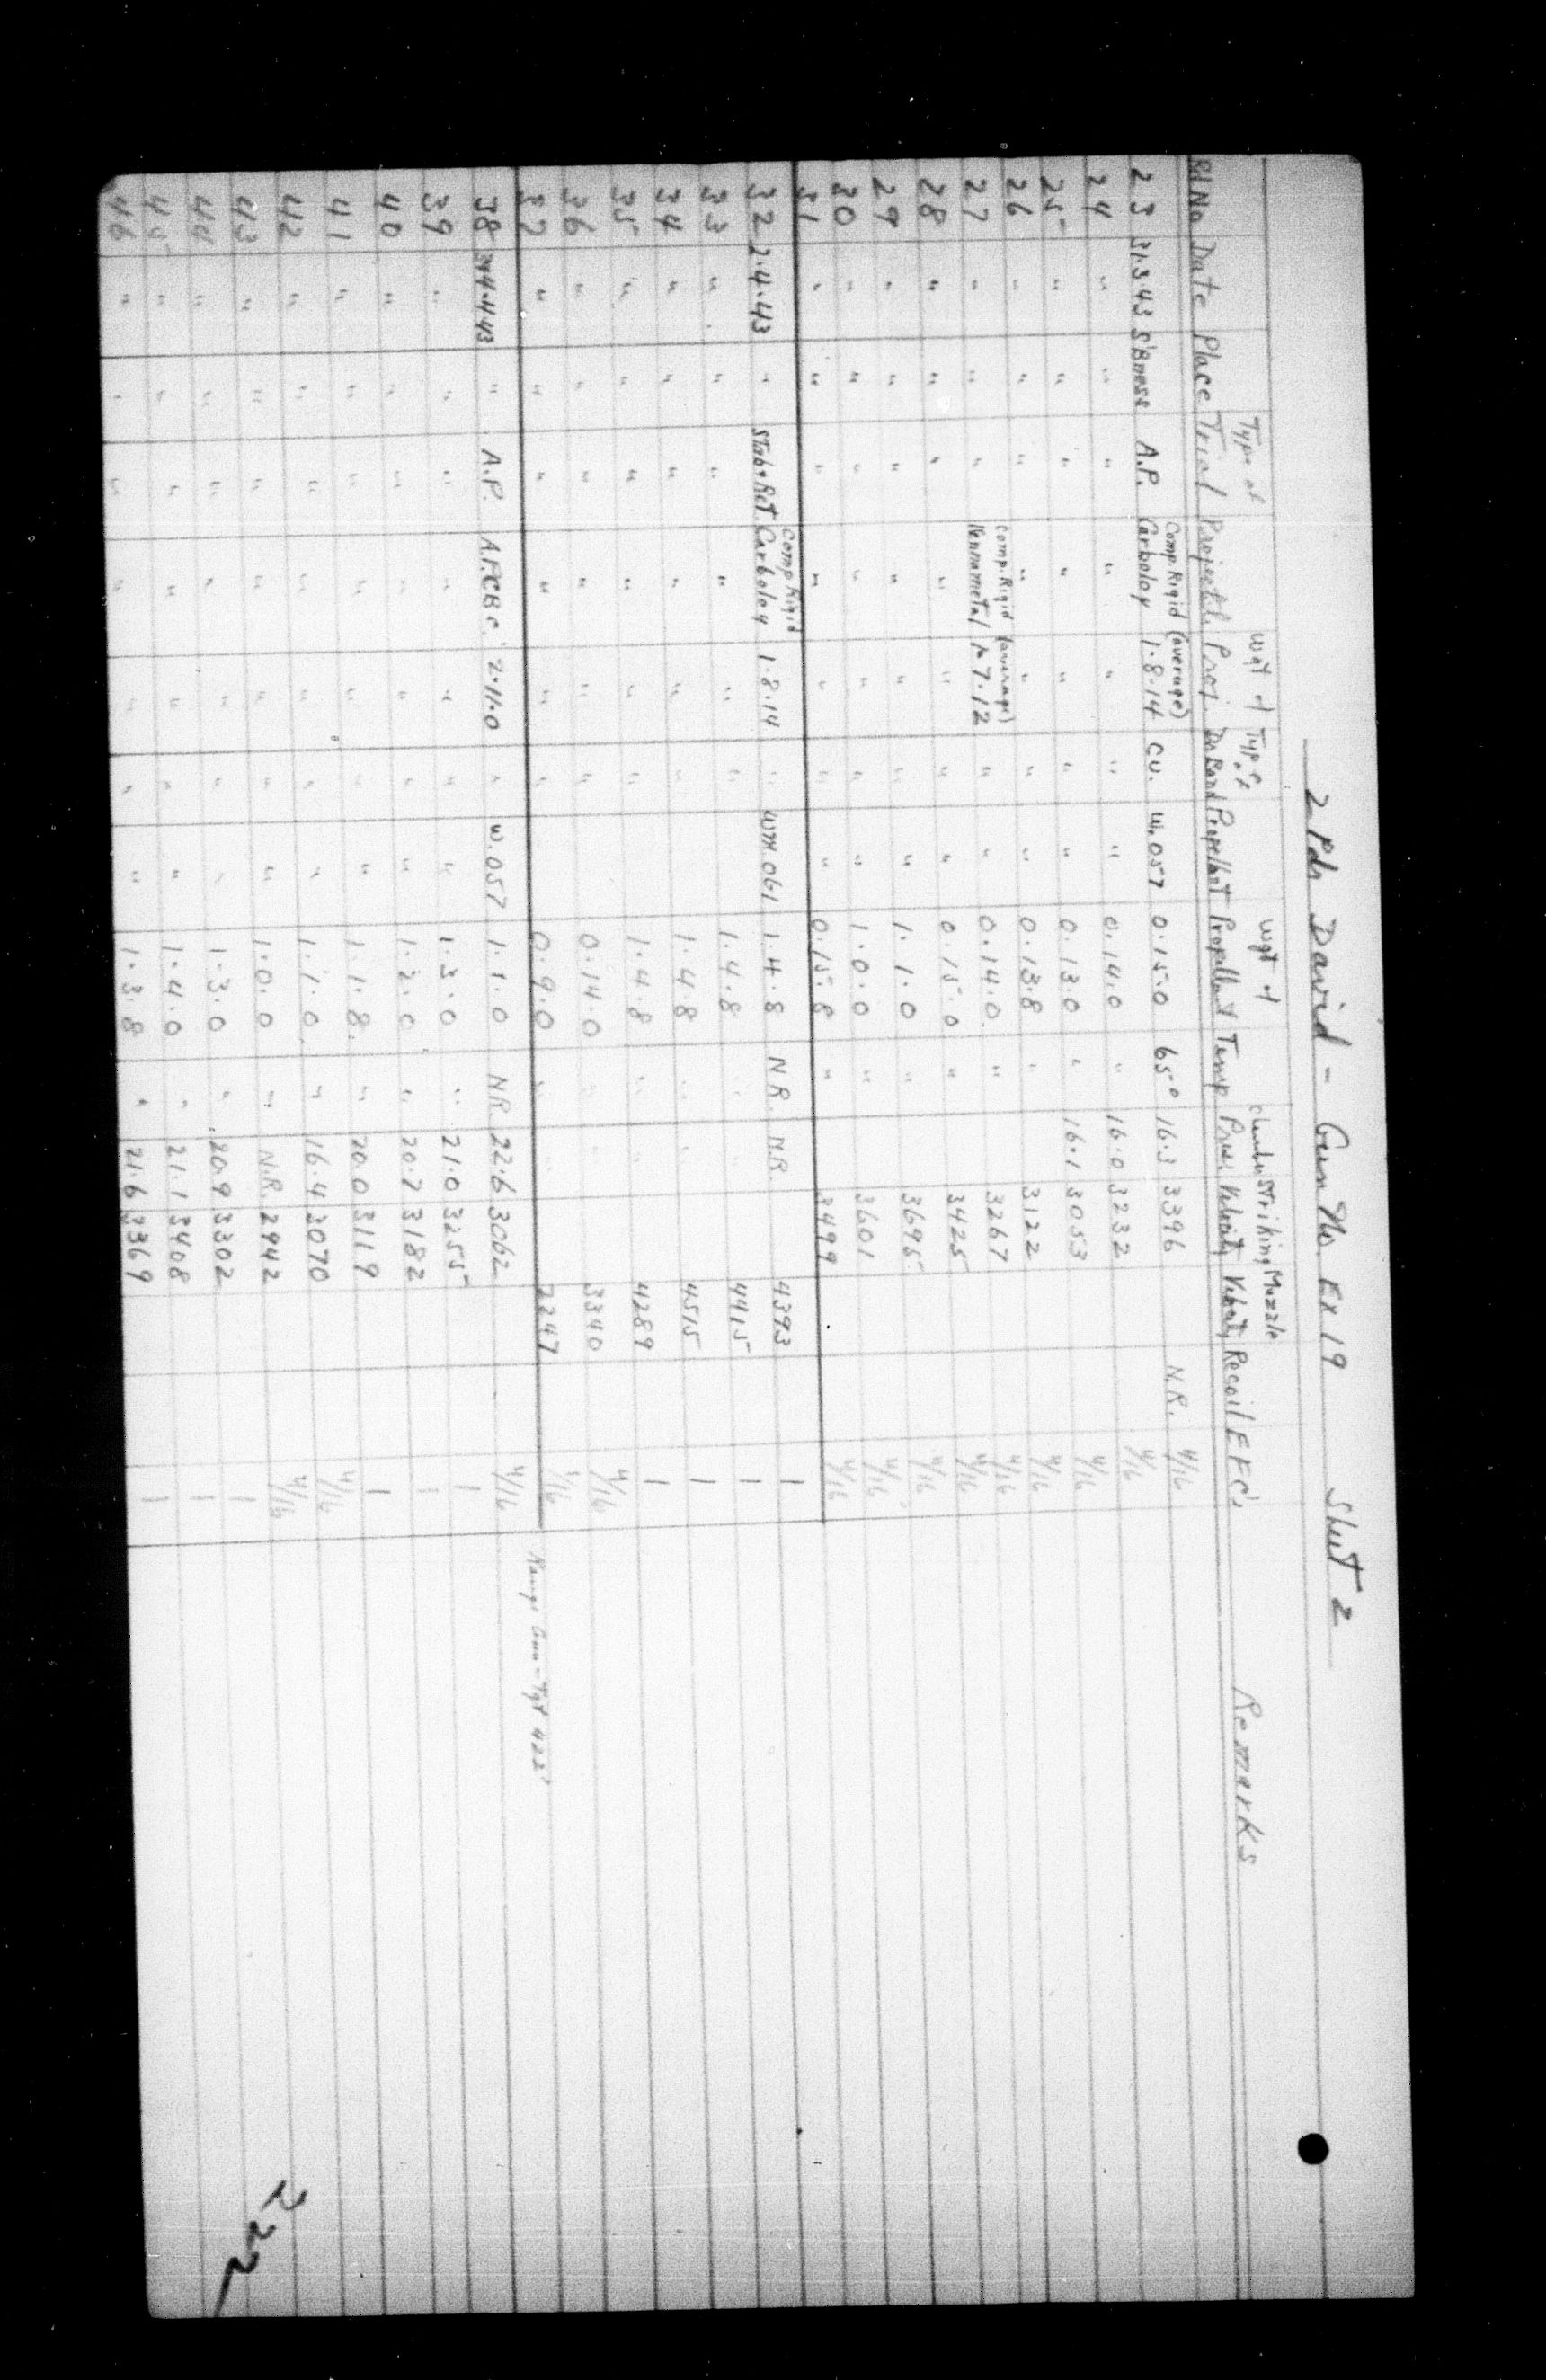 2 Pdr David - Gun No EX 19 Sheet 2
Type of Wgt of Type of Wgt of Chamber Striking Muzzle
Rd No Date Place Trial Projectile Proj. Dr Band Propellant Propellant Temp Pres. Velocity Velocity Recoil EFC's Remarks
Comp. Rigid (average)
23 31.3.43 S'Bness A.P. Carboloy 1.8.14 CU. W.057 0.15.0 65° 16.3 3396 N.R. 4/16
24 " " " " " " " 0.14.0 " 16.0 3232 4/16
25 " " " " " " " 0.13.0 " 16.1 3053 4/16
26 " " " " " " " 0.13.8 " 3122 4/16
Comp. Rigid (average)
27 " " " Kennametal 1.7.12 " " 0.14.0 " 3267 4/16
28 " " " " " " " 0.15.0 " 3425 4/16
29 " " " " " " " 1.1.0 " 3695 4/16
30 " " " " " " " 1.0.0 " 3601 4/16
31 " " " " " " " 0.15.8 " 3499 4/16
Comp Rigid
32 2.4.43 " Stab & Ret Carboloy 1.8.14 " WM.061 1.4.8 N.R. N.R. 4393 1
33 " " " " " " 1.4.8 " " 4415 1
34 " " " " " " 1.4.8 " " 4515 1
35 " " " " " " 1.4.8 " " 4289 1
36 " " " " " " 0.14.0 " " 3340 4/16
37 " " " " " " 0.9.0 " " 2247 4/16 Range Gun-Tgt 422'
38 4.4.43 " A.P. A.P.C.B.C. 2.11.0 " W.057 1.1.0 N.R. 22.6 3062 4/16
39 " " " " " " " 1.3.0 " 21.0 3255 1
40 " " " " " " " 1.2.0 " 20.7 3182 1
41 " " " " " " " 1.1.8 " 20.0 3119 1
42 " " " " " " " 1.1.0 " 16.4 3070 4/16
43 " " " " " " " 1.0.0 " N.R. 2942 4/16
44 " " " " " " " 1.3.0 " 20.9 3302 1
45 " " " " " " " 1.4.0 " 21.1 3408 1
46 " " " " " " " 1.3.8 " 21.6 3369 1
222